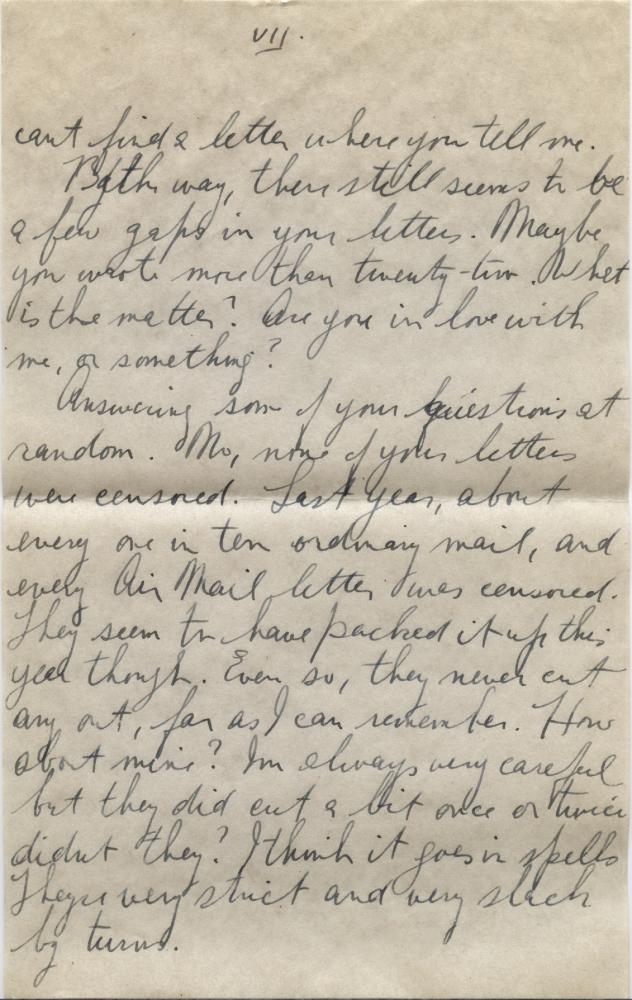 VII.
cant find a letter where you tell me.
By the way, there still seems to be
a few gaps in your letters. Maybe
you wrote more than twenty-two. What
is the matter? Are you in love with
me, or something?
Answering some of your questions at
random. No, none of your letters
were censored. Last year, about
every one in ten ordinary mail, and
every Air Mail letter was censored.
They seem to have packed it up this
year though. Even so, they never cut
any out, far as I can remember. How
about mine? Im always very careful
but they did cut a bit once or twice
didnt they? I think it goes in spells
Theyre very strict and very slack
by turns.